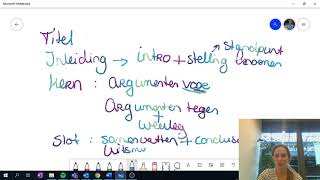 Microsoft Whiteboard
Titel
standpunt
Inleiding → intro + stelling benoemen
Kern : argumenten voor
Argumenten tegen
+
weerleg
Slot : samenvatten + conclusie